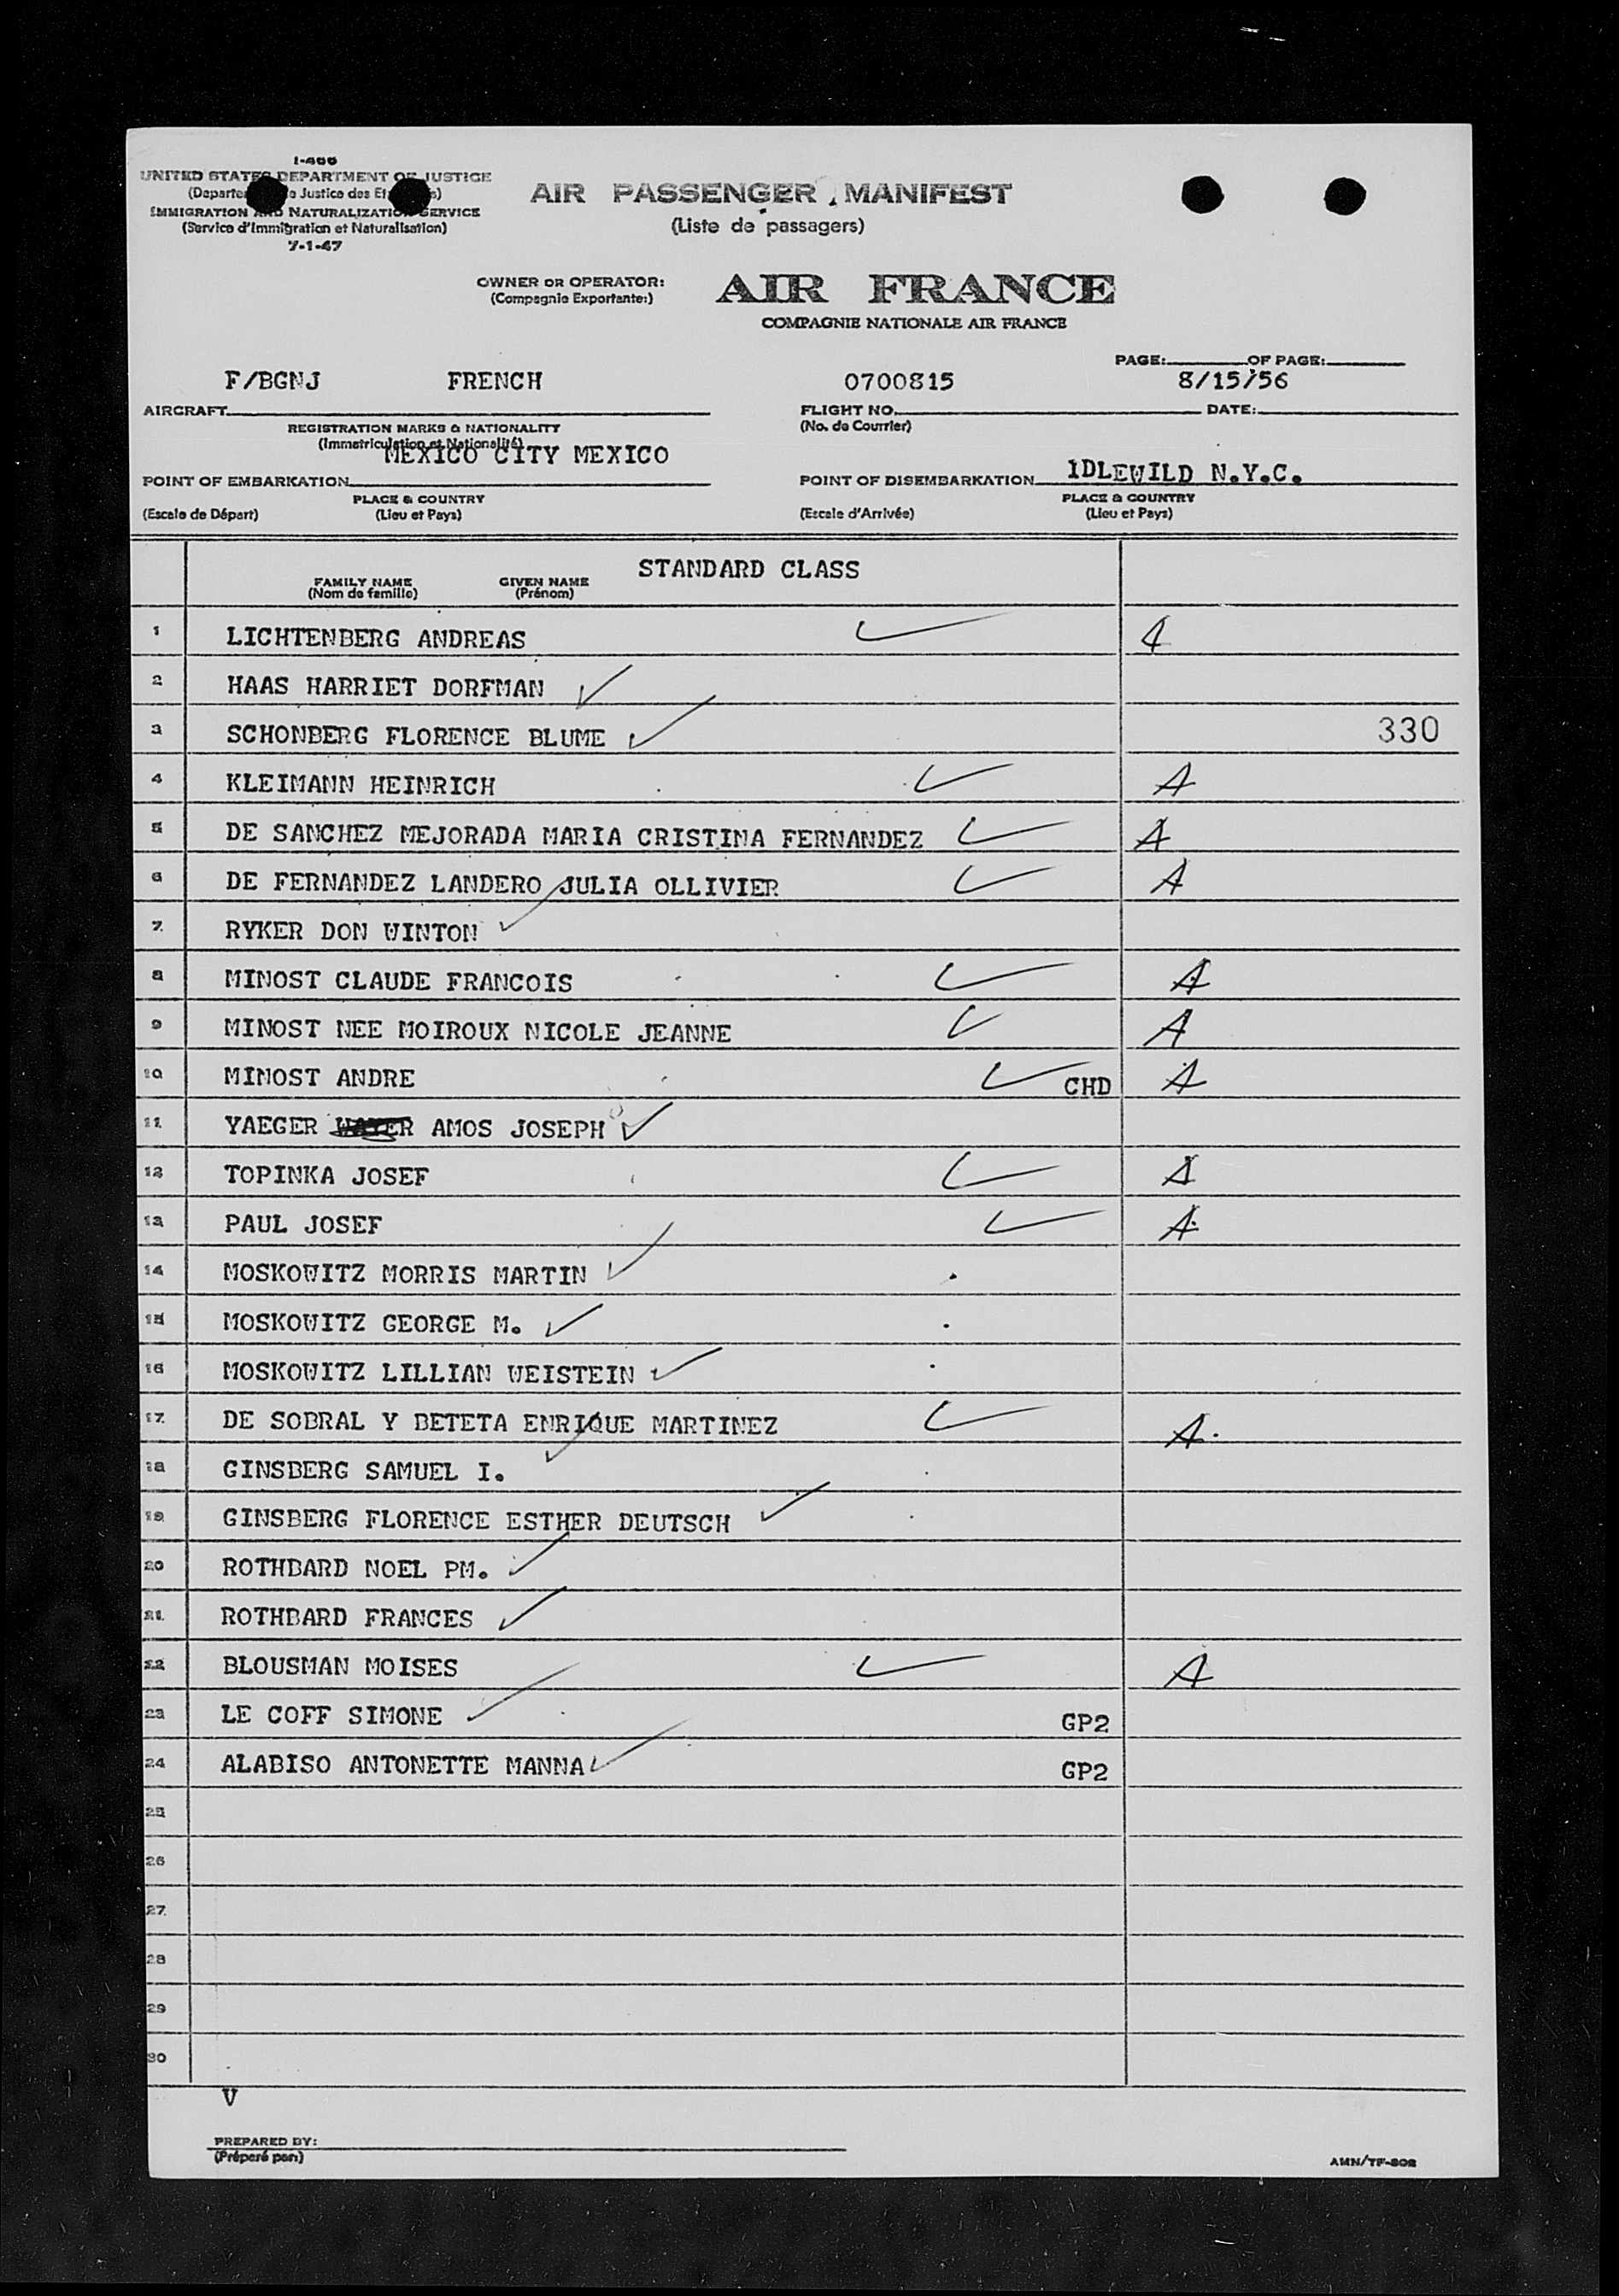 I-466
UNITED STATES DEPARTMENT OF JUSTICE
(Departe Justice des Et s)
IMMIGRATION AND NATURALIZATION SERVICE
(Service d'Immigration et Naturalisation)
7-1-47
AIR PASSENGER MANIFEST
(Liste de passagers)
OWNER OR OPERATOR:
(Compagnie Exportante:)
AIR FRANCE
COMPAGNIE NATIONALE AIR FRANCE
PAGE: OF PAGE:
F/BGNJ FRENCH 0700815 8/15/56
AIRCRAFT FLIGHT NO. DATE:
REGISTRATION MARKS & NATIONALITY (No. de Courrier)
(Immatriculation et Nationalité)
MEXICO CITY MEXICO IDLEWILD N.Y.C.
POINT OF EMBARKATION POINT OF DISEMBARKATION
PLACE & COUNTRY PLACE & COUNTRY
(Escale de Départ) (Lieu et Pays) (Escale d'Arrivée) (Lieu et Pays)
STANDARD CLASS
FAMILY NAME GIVEN NAME
(Nom de famille) (Prénom)
1 LICHTENBERG ANDREAS
2 HAAS HARRIET DORFMAN
3 SCHONBERG FLORENCE BLUME 330
4 KLEIMANN HEINRICH A
5 DE SANCHEZ MEJORADA MARIA CRISTINA FERNANDEZ A
6 DE FERNANDEZ LANDERO JULIA OLLIVIER A
7 RYKER DON WINTON
8 MINOST CLAUDE FRANCOIS A
9 MINOST NEE MOIROUX NICOLE JEANNE A
10 MINOST ANDRE CHD A
11 YAEGER AMOS JOSEPH
12 TOPINKA JOSEF A
13 PAUL JOSEF A
14 MOSKOWITZ MORRIS MARTIN
15 MOSKOWITZ GEORGE M.
16 MOSKOWITZ LILLIAN WEISTEIN
17 DE SOBRAL Y BETETA ENRIQUE MARTINEZ A.
18 GINSBERG SAMUEL I.
19 GINSBERG FLORENCE ESTHER DEUTSCH
20 ROTHBARD NOEL PM.
21 ROTHBARD FRANCES
22 BLOUSMAN MOISES A
23 LE COFF SIMONE GP2
24 ALABISO ANTONETTE MANNA GP2
25
26
27
28
29
30
V
PREPARED BY:
(Préparé par:)
AMN/TF-802